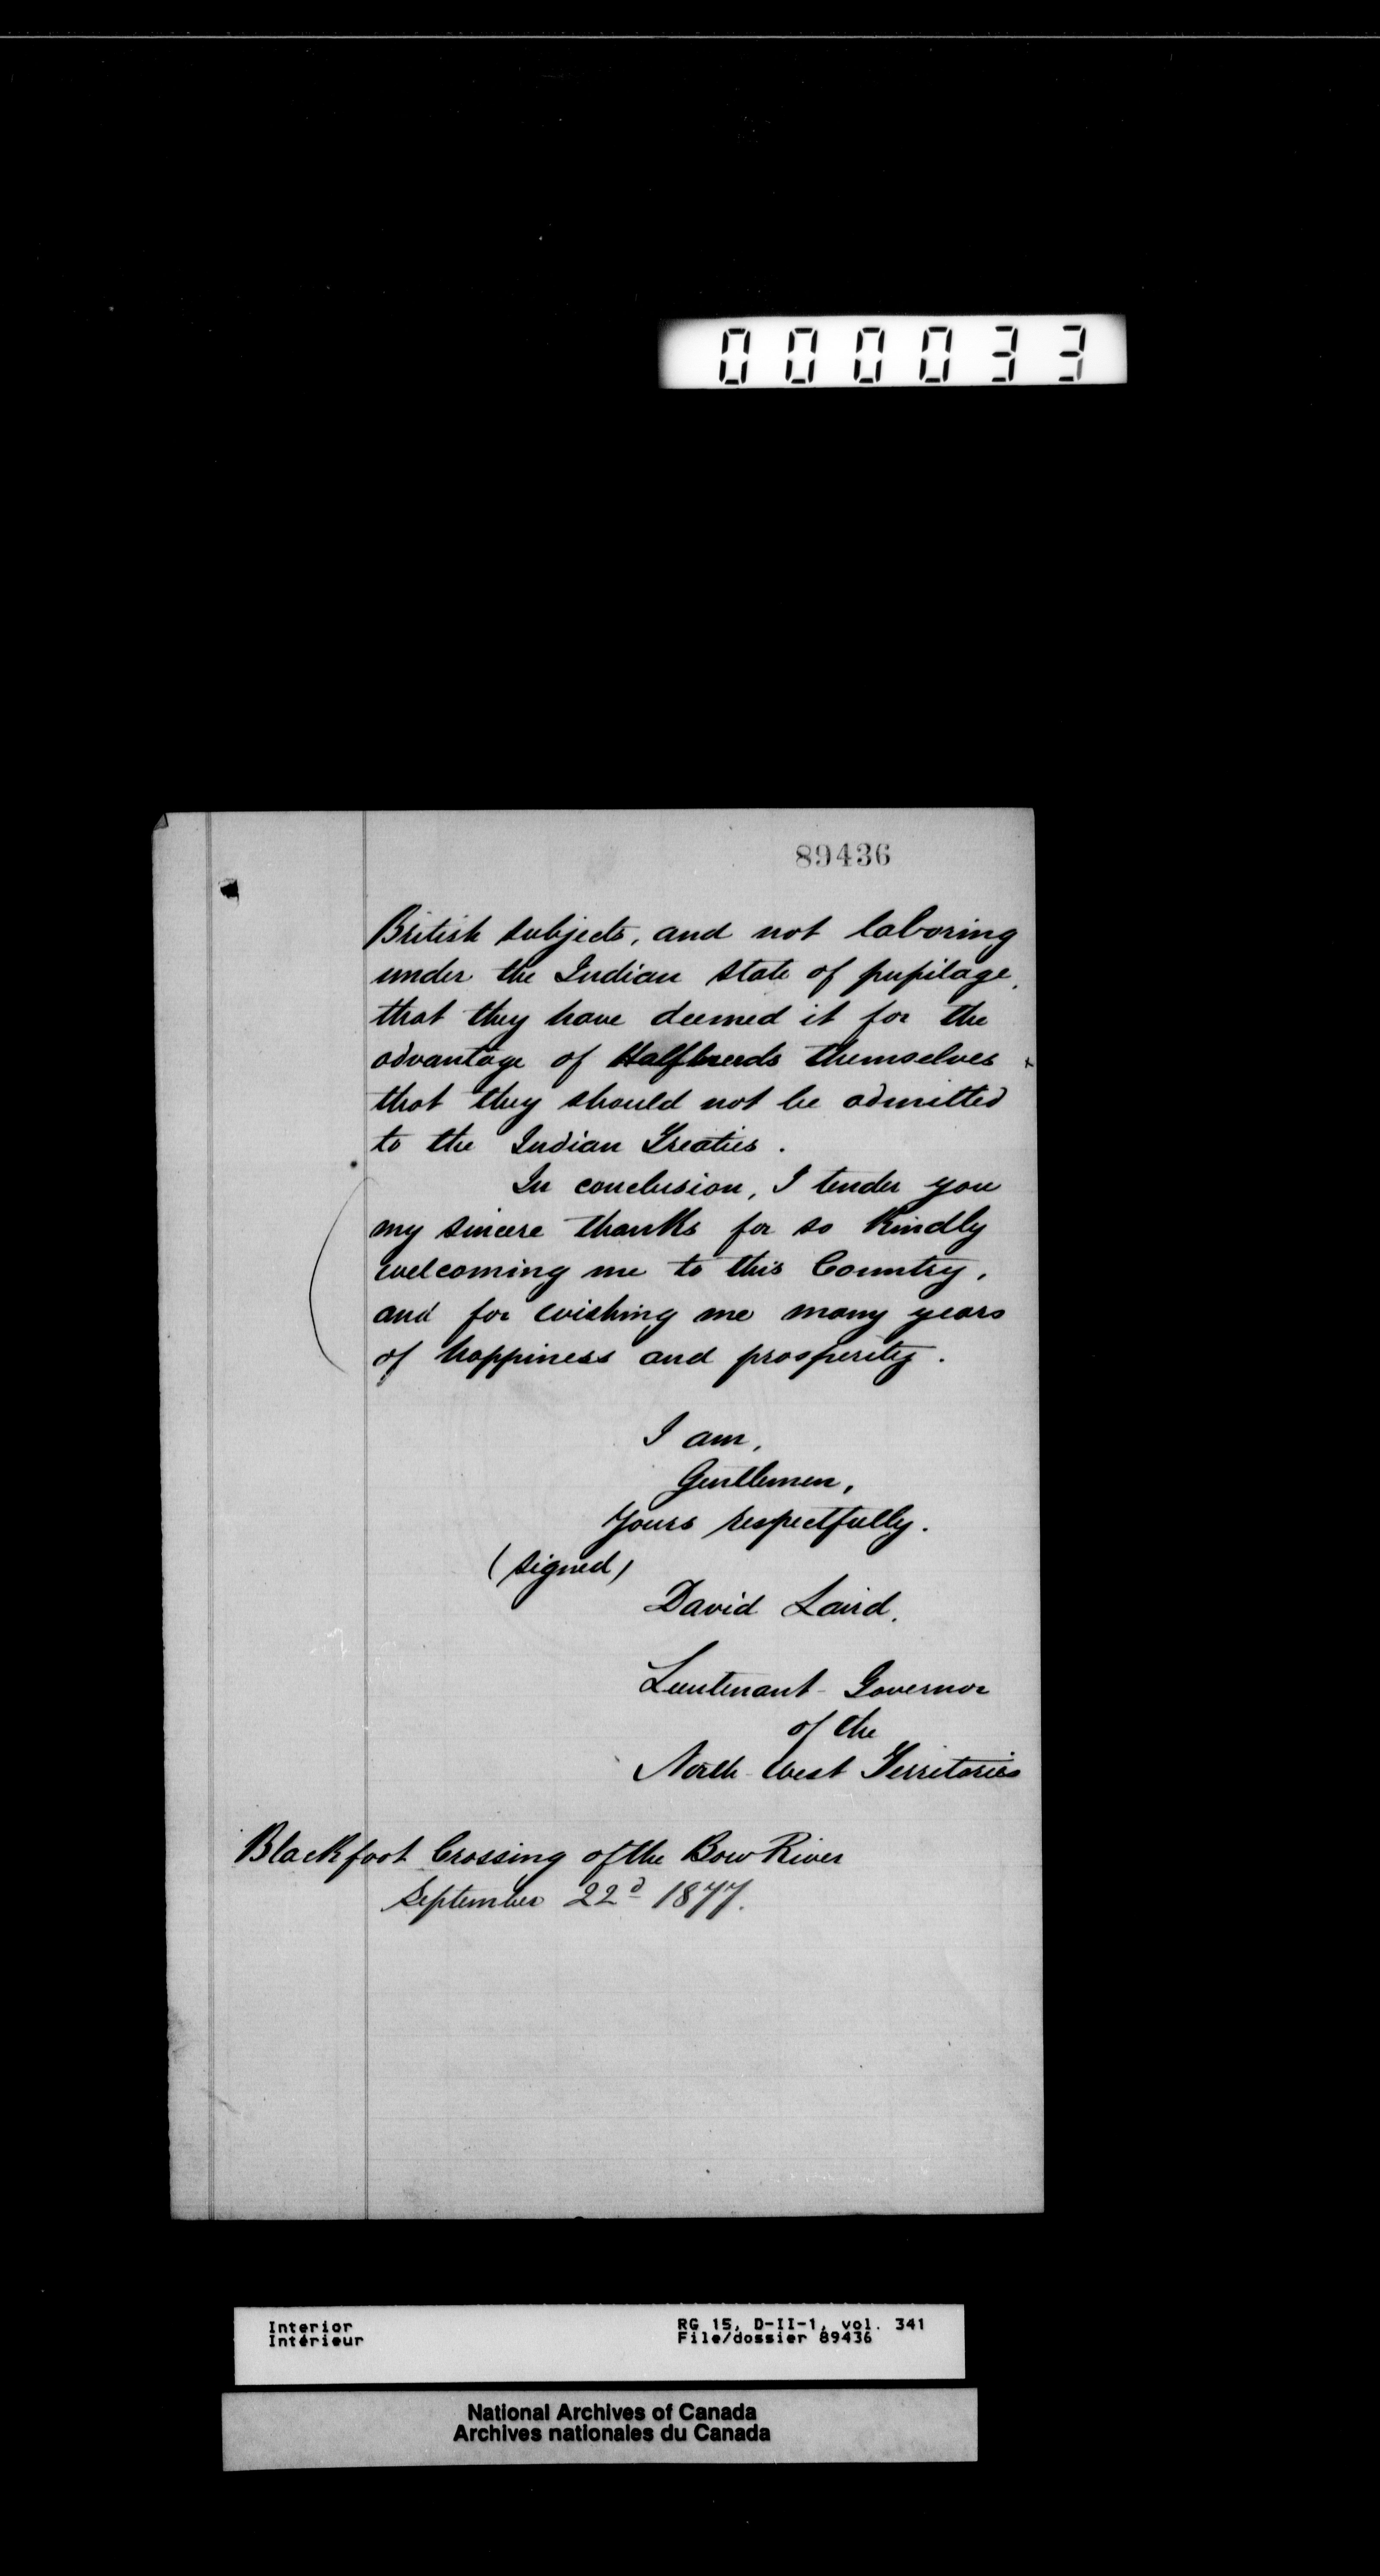 000033
89436
British subjects, and not laboring
under the Indian state of pupilage,
that they have deemed it for the
advantage of Halfbreeds themselves
that they should not be admitted
to the Indian Treaties.
In conclusion, I tender you
my sincere thanks for so kindly
welcoming me to this Country,
and for wishing me many years
of happiness and prosperity.
I am,
Gentlemen,
Yours respectfully.
(signed)
David Laird.
Lieutenant-Governor
of the
North-West Territories
Blackfoot Crossing of the Bow River
September 22d 1877.
Interior RG 15, D-II-1, vol. 341
Intérieur File/dossier 89436
National Archives of Canada
Archives nationales du Canada